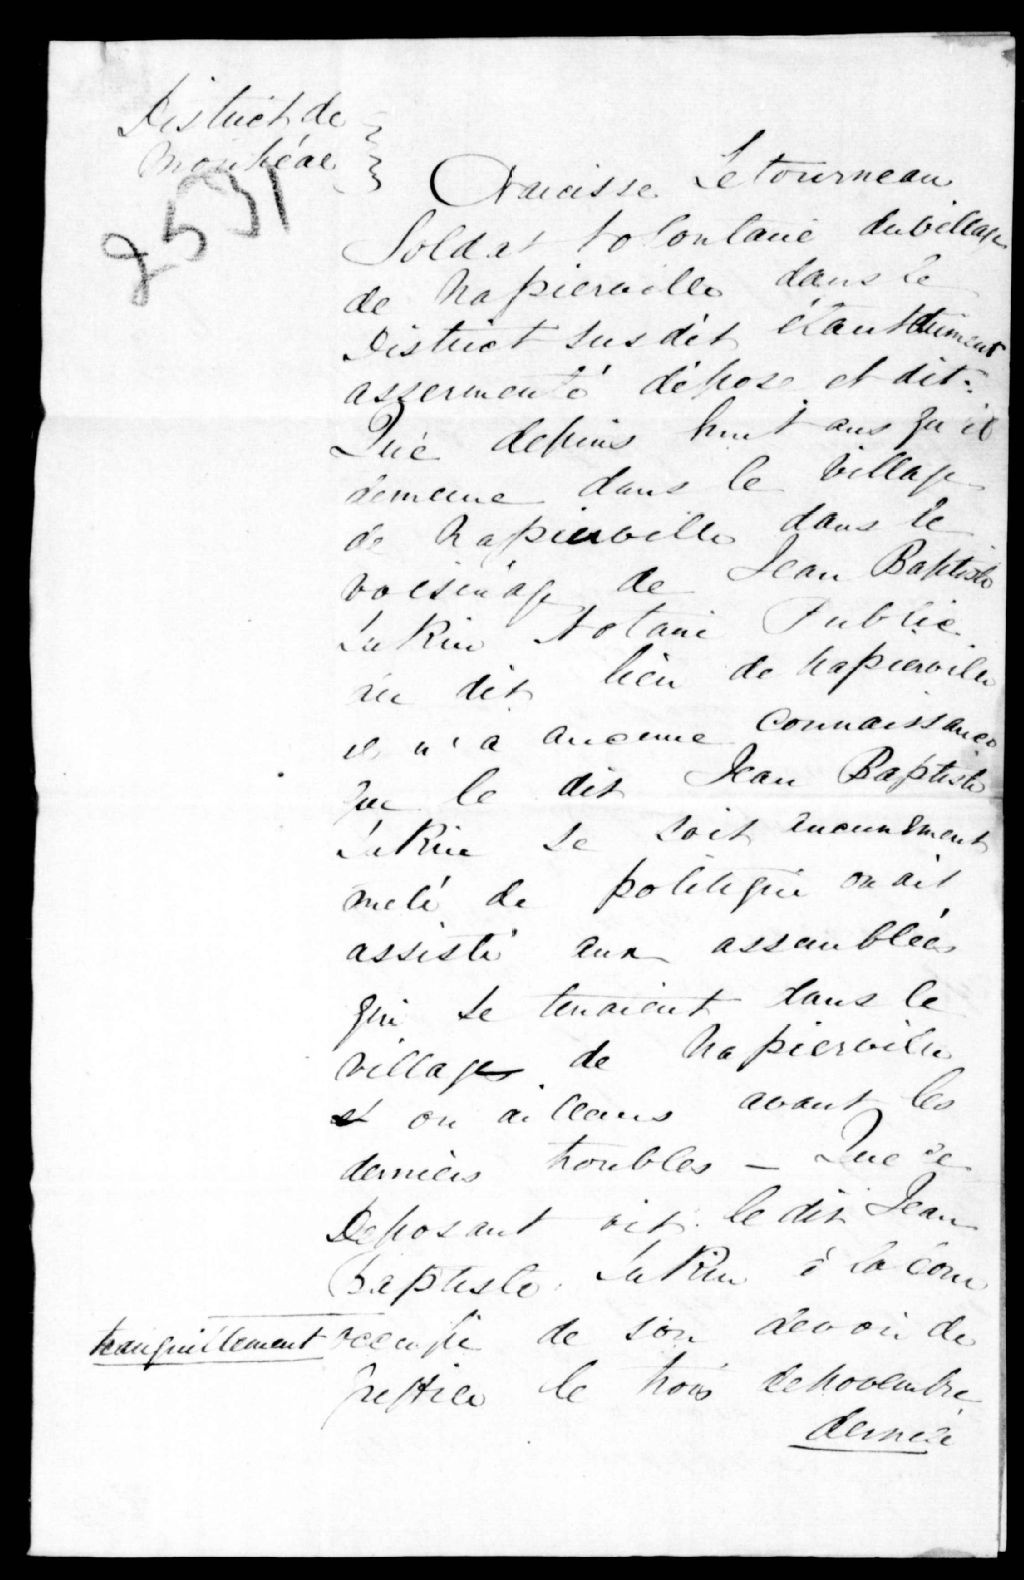 District de
Montréal
2531
Narcisse Letourneau
Soldat volontaire du village
de Napierville dans le
District susdit étant dument
assermenté dépose et dit:
Que depuis huit ans qu'il
demeure dans le village
de Napierville dans le
voisinage de Jean Baptiste
Lukin Notaire Public
au dit lieu de Napierville
il n'a aucune connaissance
que le dit Jean Baptiste
Lukin se soit aucunement
melé de politique ou ait
assisté aux assemblées
qui se tenaient dans le
village de Napierville
et ou ailleurs avant les
derniers troubles — Que le
Deposant vit le dit Jean
Baptiste Lukin à la cour
tranquillement occupé de son devoir de
greffier le trois de novembre
dernier